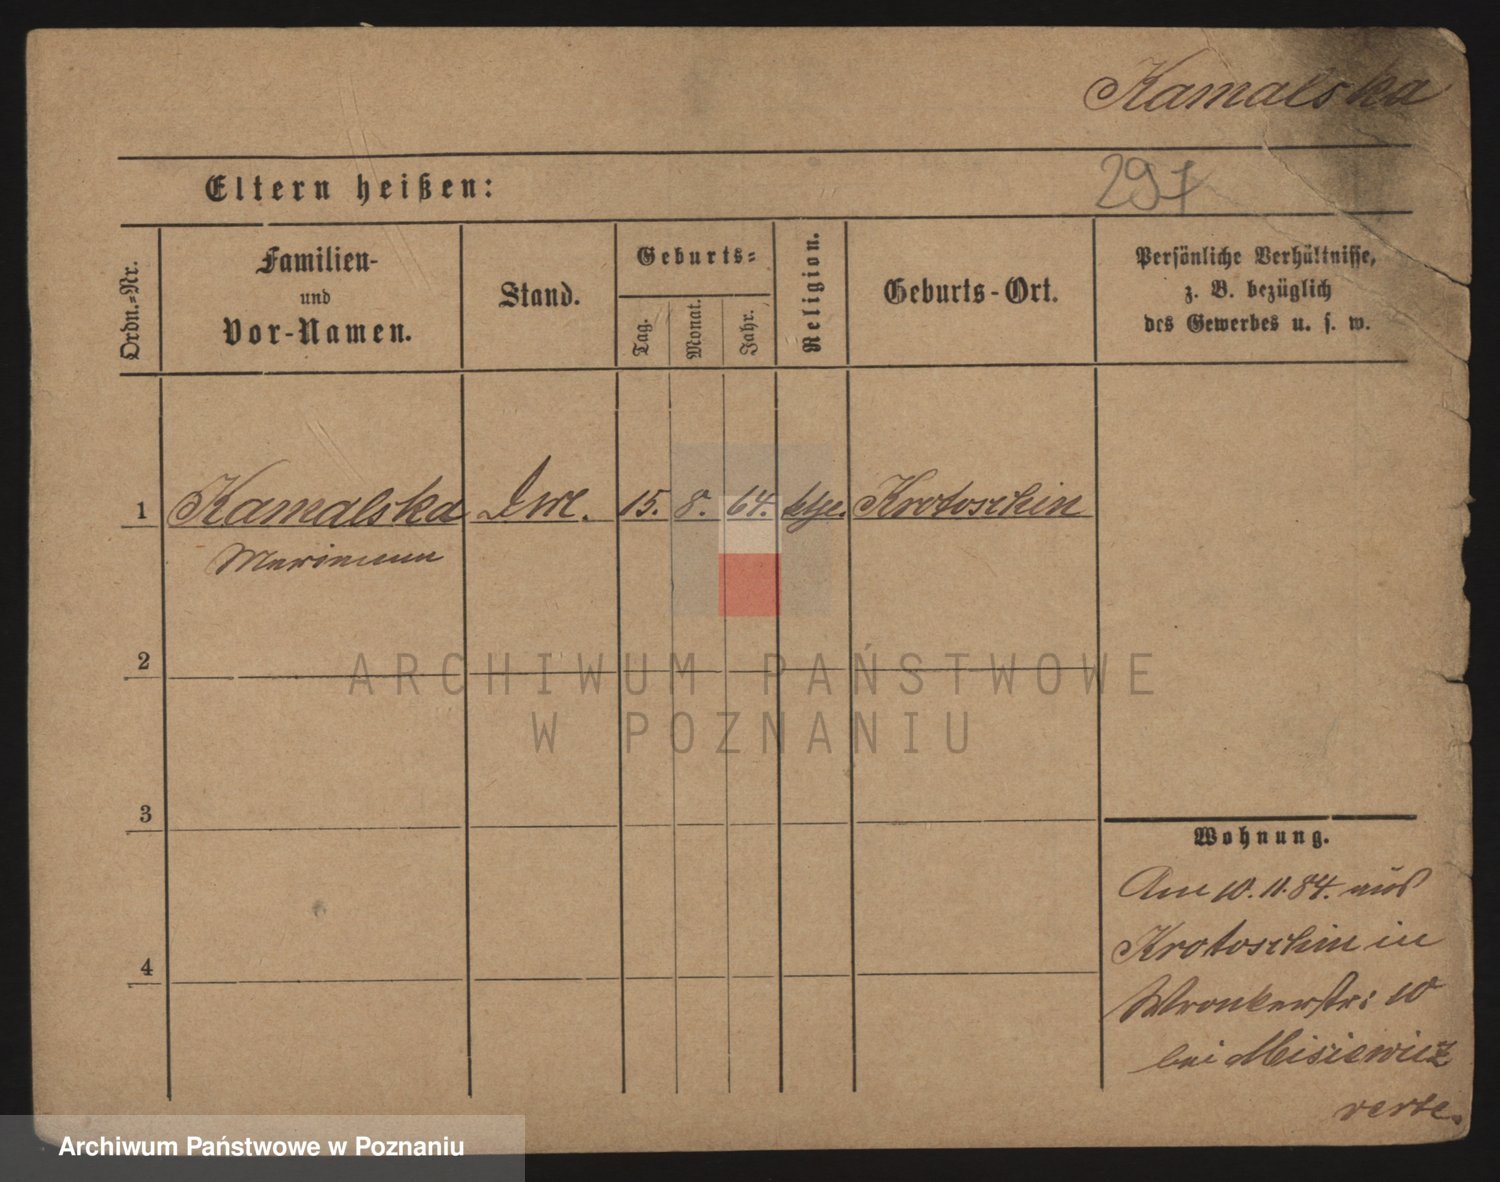 Kamalska
Eltern heißen:
297
Ordn.-Nr.
Familien-
und
Vor-Namen.
Stand.
Geburts-
Tag.
Monat.
Jahr.
Religion.
Geburts-Ort.
Persönliche Verhältnisse,
z. B. bezüglich
des Gewerbes u. s. w.
1 Kamalska 15. 8. 64. Krotoschin
Marianna
2
ARCHIWUM PAŃSTWOWE
W POZNANIU
3
Wohnung.
Am 10. 11. 84. aus
Krotoschin in
Wronkerstr: 10
4
bei Misiewicz
verte.
Archiwum Państwowe w Poznaniu